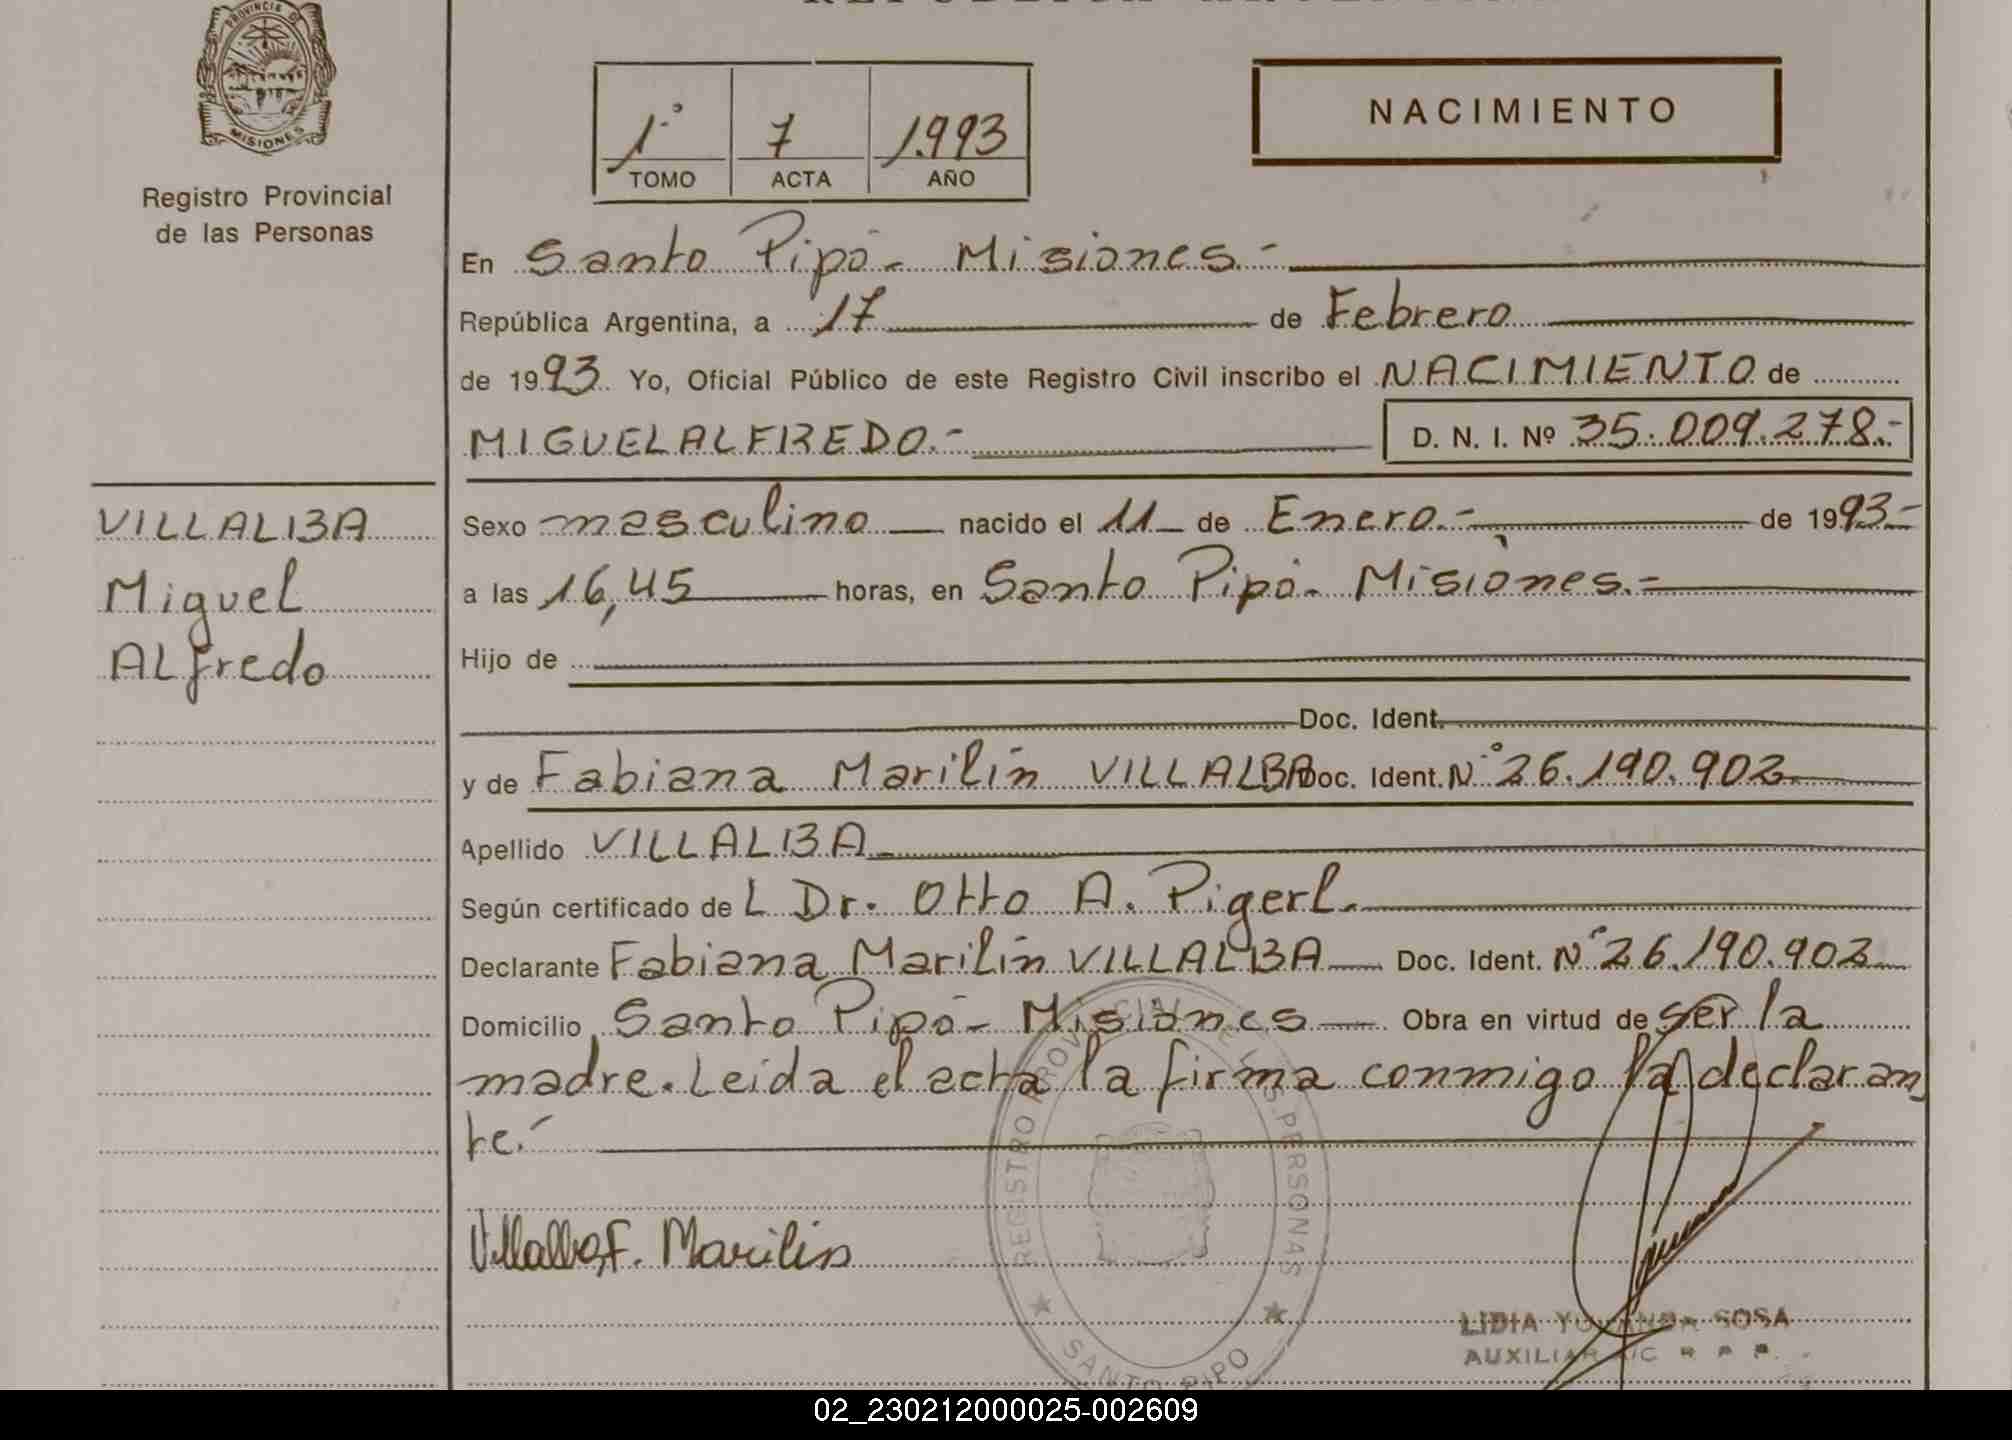 PROVINCIA DE
MISIONES
Registro Provincial
de las Personas
REPUBLICA ARGENTINA
1º 7 1.993
TOMO ACTA AÑO
NACIMIENTO
En Santo Pipó - Misiones.-
República Argentina, a 17 de Febrero
de 1993. Yo, Oficial Público de este Registro Civil inscribo el NACIMIENTO de
MIGUEL ALFREDO.- D. N. I. Nº 35.009.278.-
VILLALBA
Miguel
ALfredo
Sexo masculino nacido el 11 de Enero.- de 1993.-
a las 16,45 horas, en Santo Pipó - Misiones.-
Hijo de
Doc. Ident.
y de Fabiana Marilin VILLALBA Doc. Ident. Nº 26.190.902
Apellido VILLALBA
Según certificado de L Dr. Otto A. Pigerl.
Declarante Fabiana Marilin VILLALBA Doc. Ident. Nº 26.190.902
Domicilio Santo Pipó - Misiones Obra en virtud de ser la
madre. Leida el acta la firma conmigo la declaran
te.-
Villalba, F. Marilin
REGISTRO PROVINCIAL DE LAS PERSONAS
SANTO PIPO
LIDIA YOLANDA SOSA
AUXILIAR
02_230212000025-002609